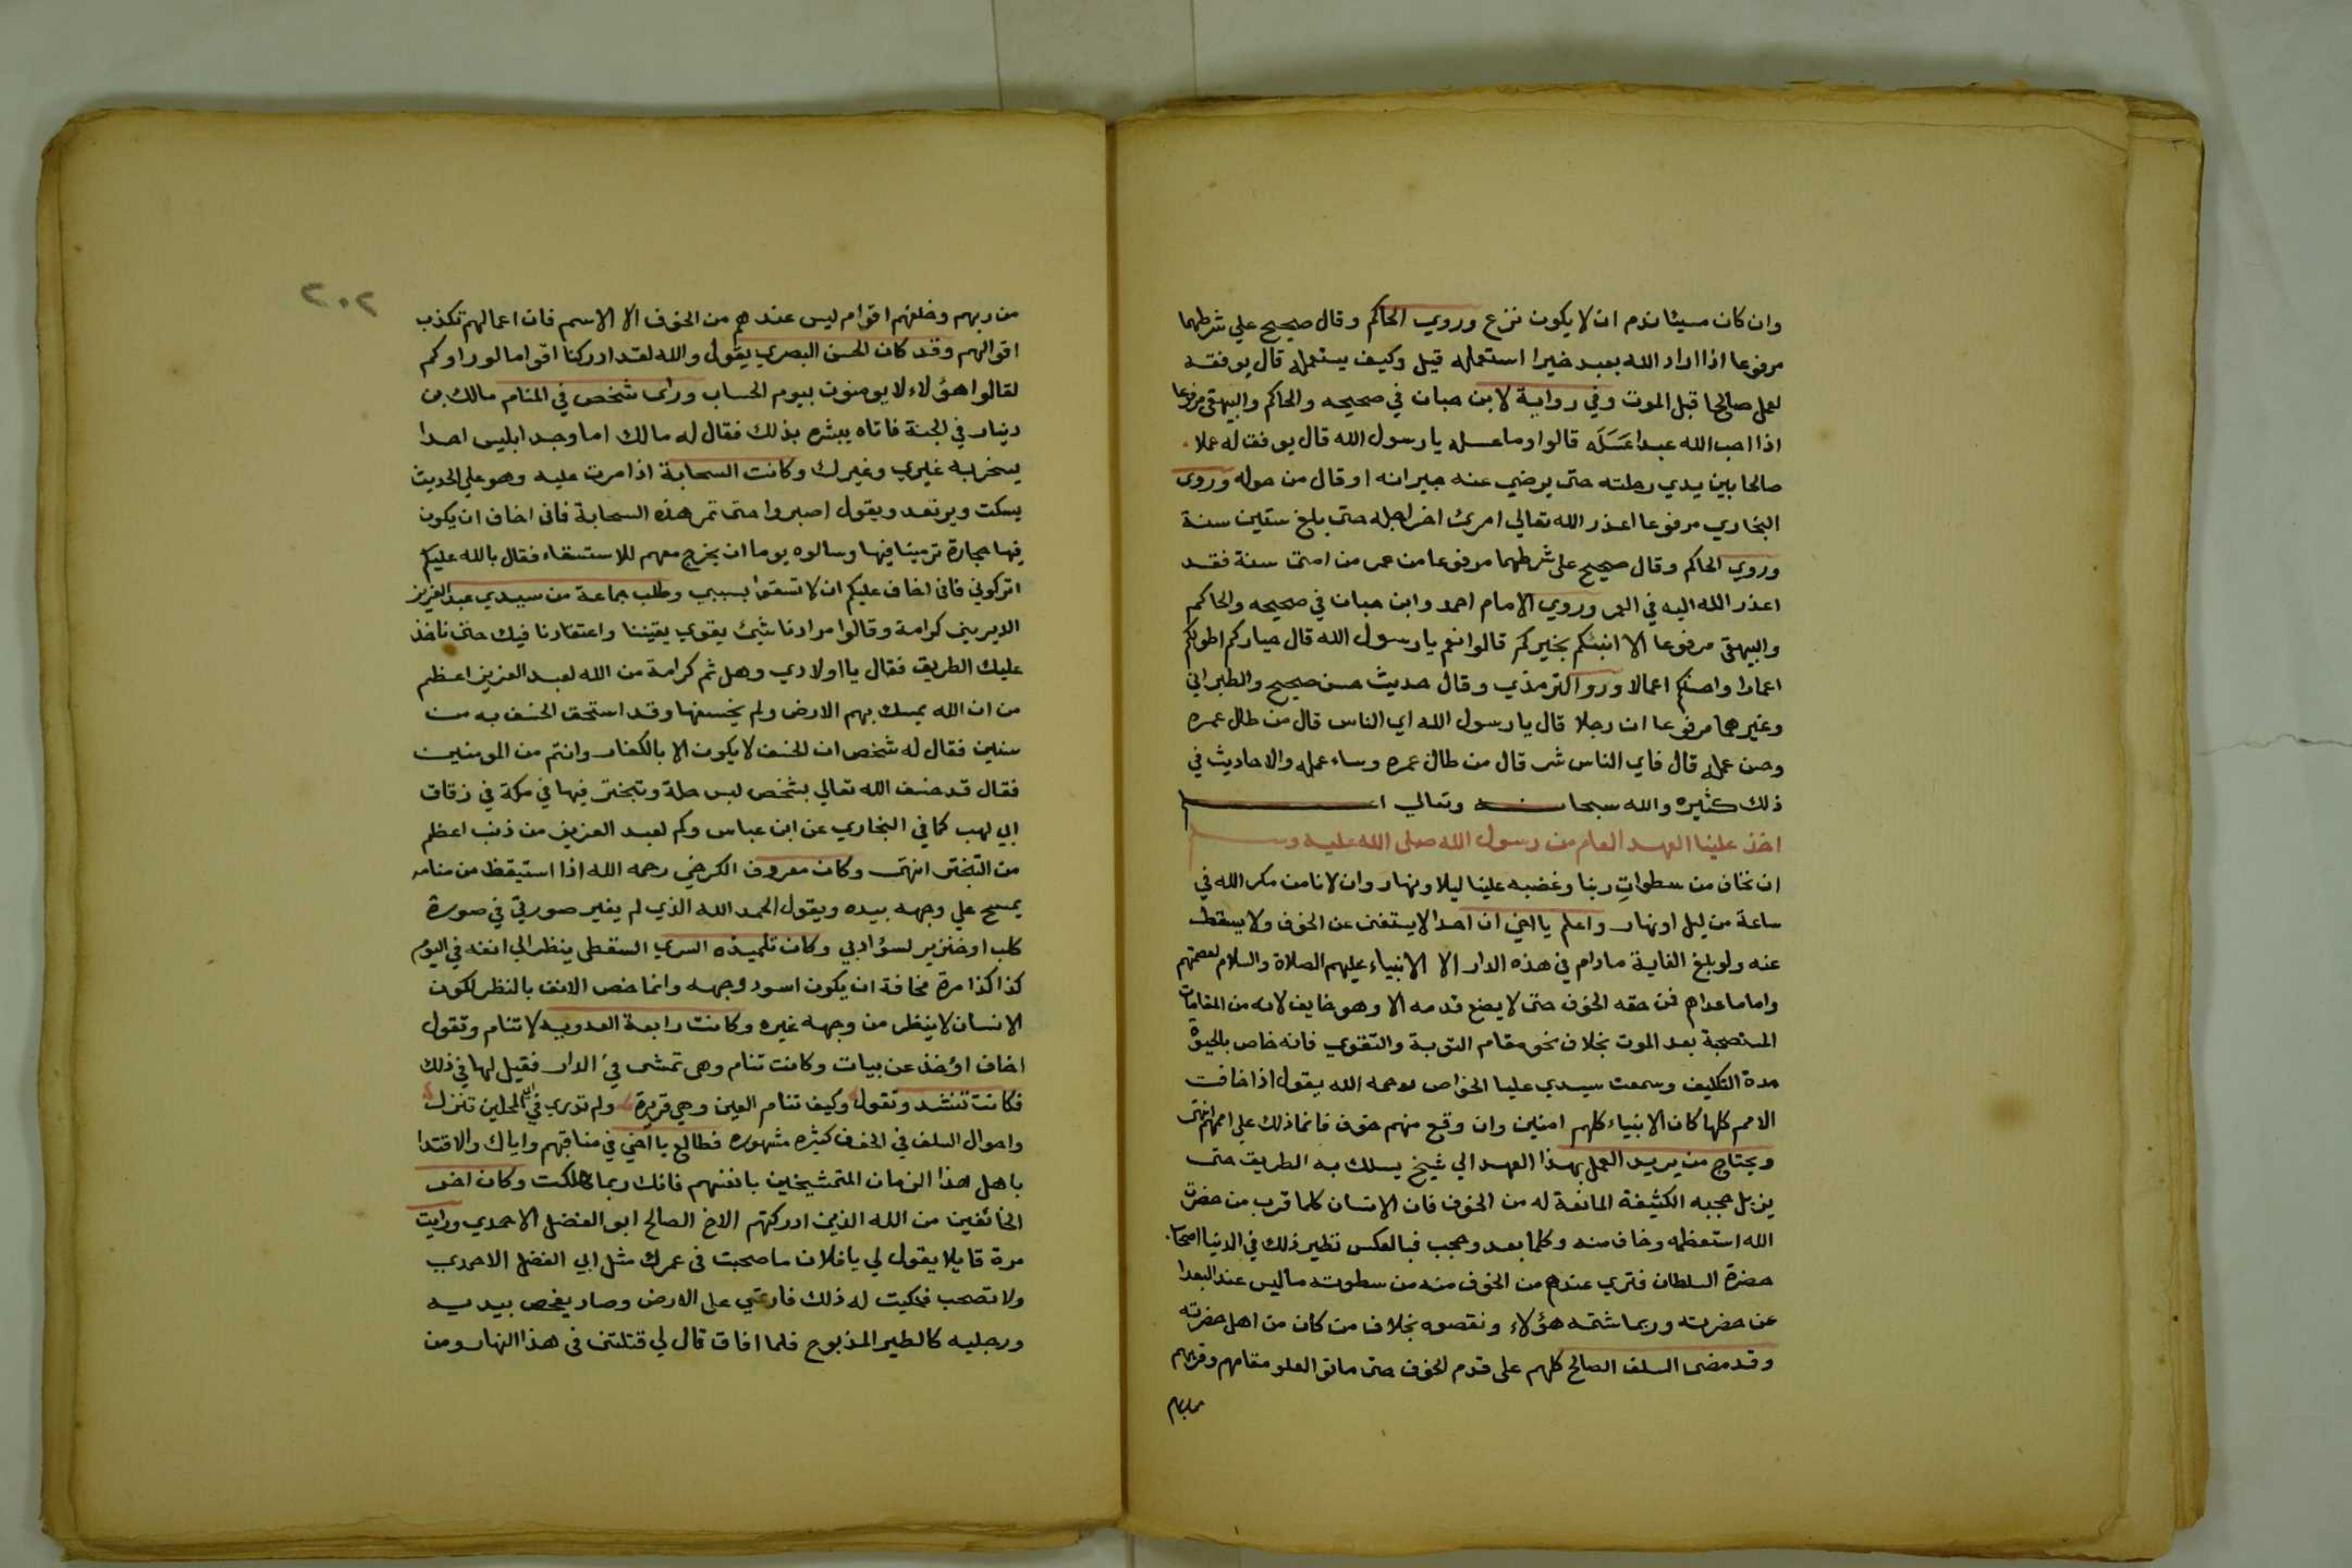 وان كان مسيئا ندم ان لا يكون نزع وروي الحاكم وقال صحيح علي شرطهما
مرفوعا اذا اراد الله بعبد خيرا استعمله قيل وكيف يستعمله قال يوفقه
لعمل صالحا قبل الموت وفي رواية لابن حبان في صحيحه والحاكم والبيهقي مرفوعا
اذا احب الله عبدا عَسَلَه قالوا وما عسله يا رسول الله قال يوفق له عملا
صالحا بين يدي رحلته حتى يرضي عنه جيرانه او قال من حوله وروى
البخاري مرفوعا اعذر الله تعالي امرئ اخر اجله حتى بلغ ستين سنة
وروي الحاكم وقال صحيح على شرطهما مرفوعا من عمر من امتى سنة فقد
اعذر الله اليه في العمر وروي الامام احمد وابن حبان في صحيحه والحاكم
والبيهقى مرفوعا الا انبئكم بخيركم قالوا نعم يا رسول الله قال خياركم اطولكم
اعمارا واحسنكم اعمالا ورو الترمذي وقال حديث حسن صحيح والطبراني
وغيرهما مرفوعا ان رجلا قال يا رسول الله اي الناس قال من طال عمره
وحسن عمله قال فاي الناس شر قال من طال عمره وساء عمله والاحاديث في
ذلك كثيره والله سبحانه وتعالي اعلم
اخذ علينا العهد العام من رسول الله صلى الله عليه وسلم
ان نخاف من سطواتِ ربنا وغضبه علينا ليلا ونهار وان لا نامن مكر الله في
ساعة من ليل او نهار واعلم يا اخي ان احدا لا يستغنى عن الخوف ولا يسقط
عنه ولو بلغ الغاية مادام في هذه الدار الا الانبياء عليهم الصلاة والسلام لعصمتهم
واما ما عداهم فمن حقه الخوف حتى لا يضع قدمه الا وهو خايف لانه من المقامات
المستصحبة بعد الموت بخلاف نحو مقام التوبة والتقوي فانه خاص بالحيوة
مدة التكليف وسمعت سيدي عليا الخواص رحمه الله يقول اذا خافت
الامم كلها كان الانبياء كلهم امنين وان وقع منهم خوف فانما ذلك علي اممهم انتهى
ويحتاج من يريد العمل بهذا العهد الي شيخ يسلك به الطريق حتى
يزيل حجبه الكثيفة المانعة له من الخوف فان الانسان كلما قرب من حضرة
الله استعظمه وخاف منه وكلما بعد وحجب فبالعكس نظير ذلك في الدنيا اصحاب
حضرة السلطان فتري عندهم من الخوف منه من سطوته ما ليس عند البعدا
عن حضرته وربما شتمه هؤلاء ونقصوه بخلاف من كان من اهل حضرته
وقد مضى السلف الصالح كلهم على قدم الخوف حتى ماتو العلو مقامهم وقربهم
من ربهم وخلفهم اقوام ليس عندهم من الخوف الا الاسم فان اعمالهم تكذب
اقوالهم وقد كان الحسن البصري يقول والله لقد ادركنا اقواما لو راوكم
لقالوا هؤلاء لا يومنون بيوم الحساب وراى شخص في المنام مالك بن
دينار في الجنة فاتاه يبشره بذلك فقال له مالك اما وجد ابليس احدا
يسخر به غيري وغيرك وكانت السحابة اذا مرت عليه وهو علي الحديث
يسكت ويرتعد ويقول اصبروا حتى تمر هذه السحابة فانى اخاف ان يكون
فيها حجارة ترمينا فيها وسالوه يوما ان يخرج معهم للاستسقاء فقال بالله عليكم
اتركوني فانى اخاف عليكم ان لا تسقوا بسببي وطلب جماعة من سيدي عبد العزيز
الديرينى كرامة وقالوا مرادنا شيئ يقوي يقيننا واعتقادنا فيك حتى ناخذ
عليك الطريق فقال يا اولادي وهل ثم كرامة من الله لعبد العزيز اعظم
من ان الله يمسك بهم الارض ولم يخسفها وقد استحق الخسف به من
سنين فقال له شخص ان الخسف لا يكون الا بالكفار وانتم من المومنين
فقال قد خسف الله تعالي بشخص لبس حلة وتبختر فيها في مكة في زقاق
ابي لهب كما في البخاري عن ابن عباس وكم لعبد العزيز من ذنب اعظم
من التبختر انتهى وكان معروف الكرخي رحمه الله اذا استيقظ من منامه
يمسح علي وجهه بيده ويقول الحمد الله الذي لم يغير صورتي في صورة
كلب او خنزير لسؤ ادبي وكان تلميذه السري السقطى ينظر الي انفه في اليوم
كذا كذا مرة مخافة ان يكون اسود وجهه وانما خص الانف بالنظر لكون
الانسان لا ينظر من وجهه غيره وكانت رابعة العدويه لا تنام وتقول
اخاف اؤخذ عن بيات وكانت تنام وهى تمشى في الدار فقيل لها في ذلك
فكانت تنشد وتقول وكيف تنام العين وهي قريرة ولم تدري في اي المحلين تنزل
واحوال السلف في الخوف كثيره مشهوره فطالع يا اخي في مناقبهم واياك والاقتدا
باهل هذا الزمان المتمشيخين بانفسهم فانك ربما هلكت وكان اخر
الخائفين من الله الذين ادركتهم الاخ الصالح ابو الفضل الاحمدي ورايت
مرة قايلا يقول لي يا فلان ما صحبت فى عمرك مثل ابي الفضل الاحمدي
ولا تصحب فحكيت له ذلك فارتمي على الارض وصار يفحص بيديه
ورجليه كالطير المذبوح فلما افاق قال لي قتلتنى فى هذا النهار ومن
٢٠٢